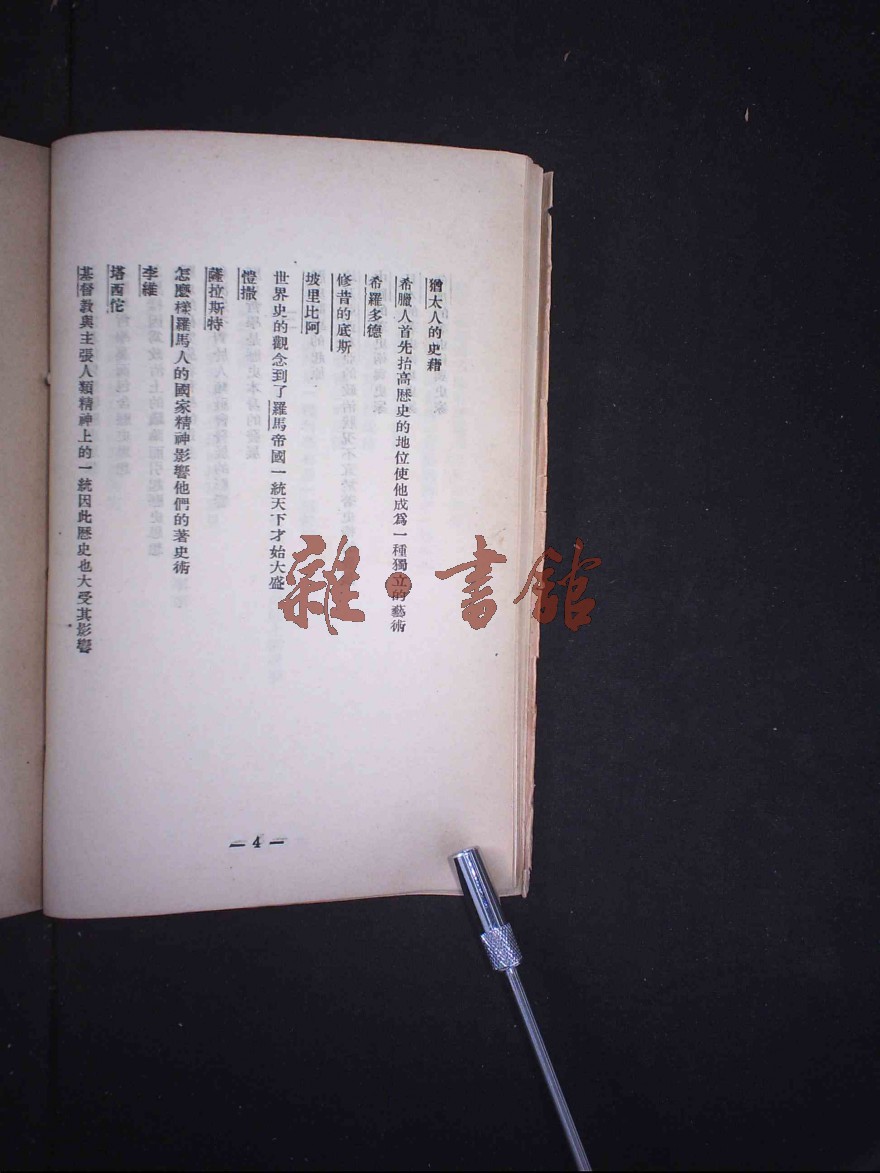 猶太人的史籍
希臘人首先抬高歷史的地位使他成爲一種獨立的藝術
希羅多德
修昔的底斯
坡里比阿
世界史的觀念到了羅馬帝國一統天下才始大盛
愷撒
薩拉斯特
怎麼樣羅馬人的國家精神影響他們的著史術
李維
塔西佗
基督教與主張人類精神上的一統因此歷史也大受其影響
— 4 —
雜·書館